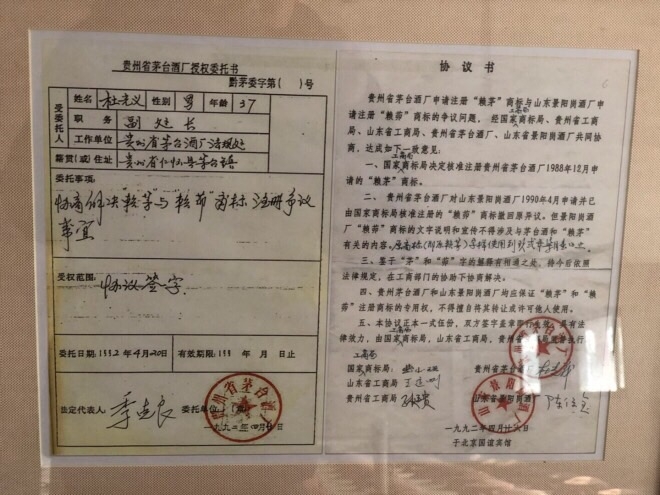 贵州省茅台酒厂授权委托书
黔茅委字第( )号
受委托人
姓名 杜光义 性别 男 年龄 37
职务 副处长
工作单位 贵州省茅台酒厂法规处
籍贯(或)住址 贵州省仁怀县茅台镇
委托事项:
协商解决"赖茅"与"赖茆"商标注册争议
事宜
受权范围:
协议签字
委托日期:1992年4月20日 有效期限:199 年 月 日止
法定代表人 季克良 委托单位
贵州省茅台酒厂
一九九二年四月廿日
协议书
贵州省茅台酒厂申请注册"赖茅"商标与山东景阳岗酒厂申
请注册"赖茆"商标的争议问题,经国家工商局商标局、贵州省工商局、
山东省工商局、贵州省茅台酒厂、山东省景阳岗酒厂共同协
商,达成如下一致意见:
一、国家工商局商标局决定核准注册贵州省茅台酒厂1988年12月申
请的"赖茅"商标。
二、贵州省茅台酒厂对山东景阳岗酒厂1990年4月申请并已
由国家商标局核准注册的"赖茆"商标撤回原异议。但景阳岗酒厂
"赖茆"商标的文字说明和宣传不得涉及与茅台酒和"赖茅"
有关的内容。
三、鉴于"茅"和"茆"字的解释有相通之处,待今后依照
法律规定,在工商部门的协助下协商解决。
四、贵州省茅台酒厂和山东景阳岗酒厂均应保证"赖茅"和"赖
茆"注册商标的专用权,不得擅自将其转让或许可他人使用。
五、本协议正本一式伍份,双方签字盖章即行生效,具有法
律效力,由国家工商局商标局、山东省工商局、贵州省工商局监督执行
国家工商局商标局: 贵州省茅台酒厂
山东省工商局 山东省景阳岗酒厂
贵州省工商局
一九九二年四月廿八日
于北京国谊宾馆